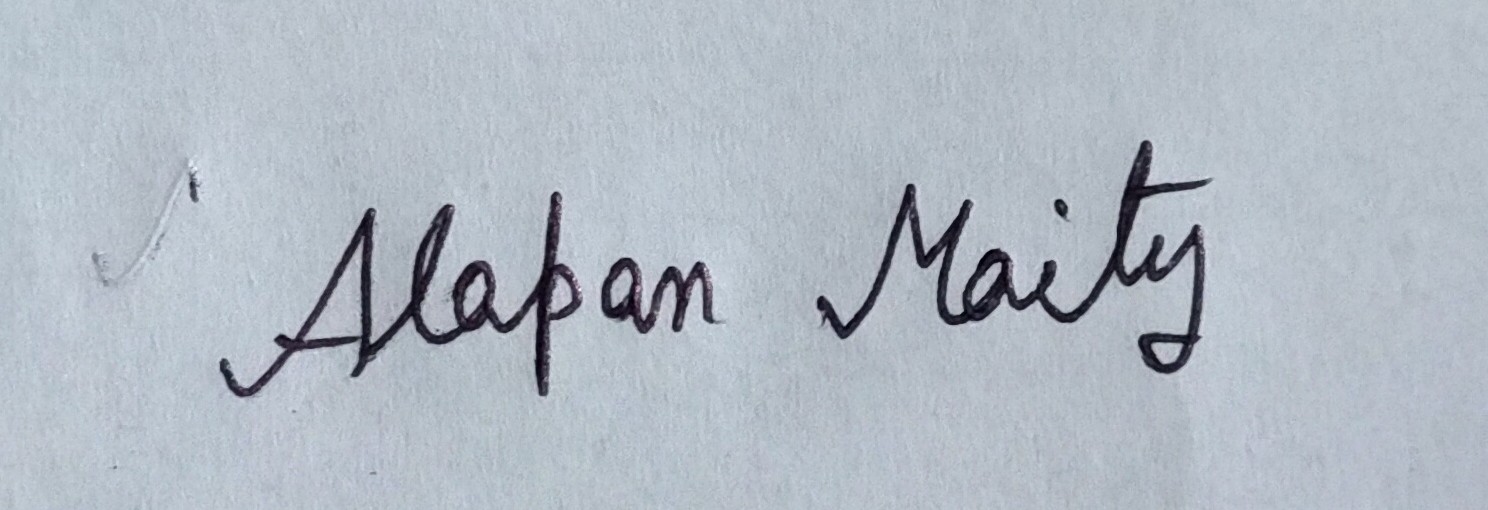 Alapan Maity